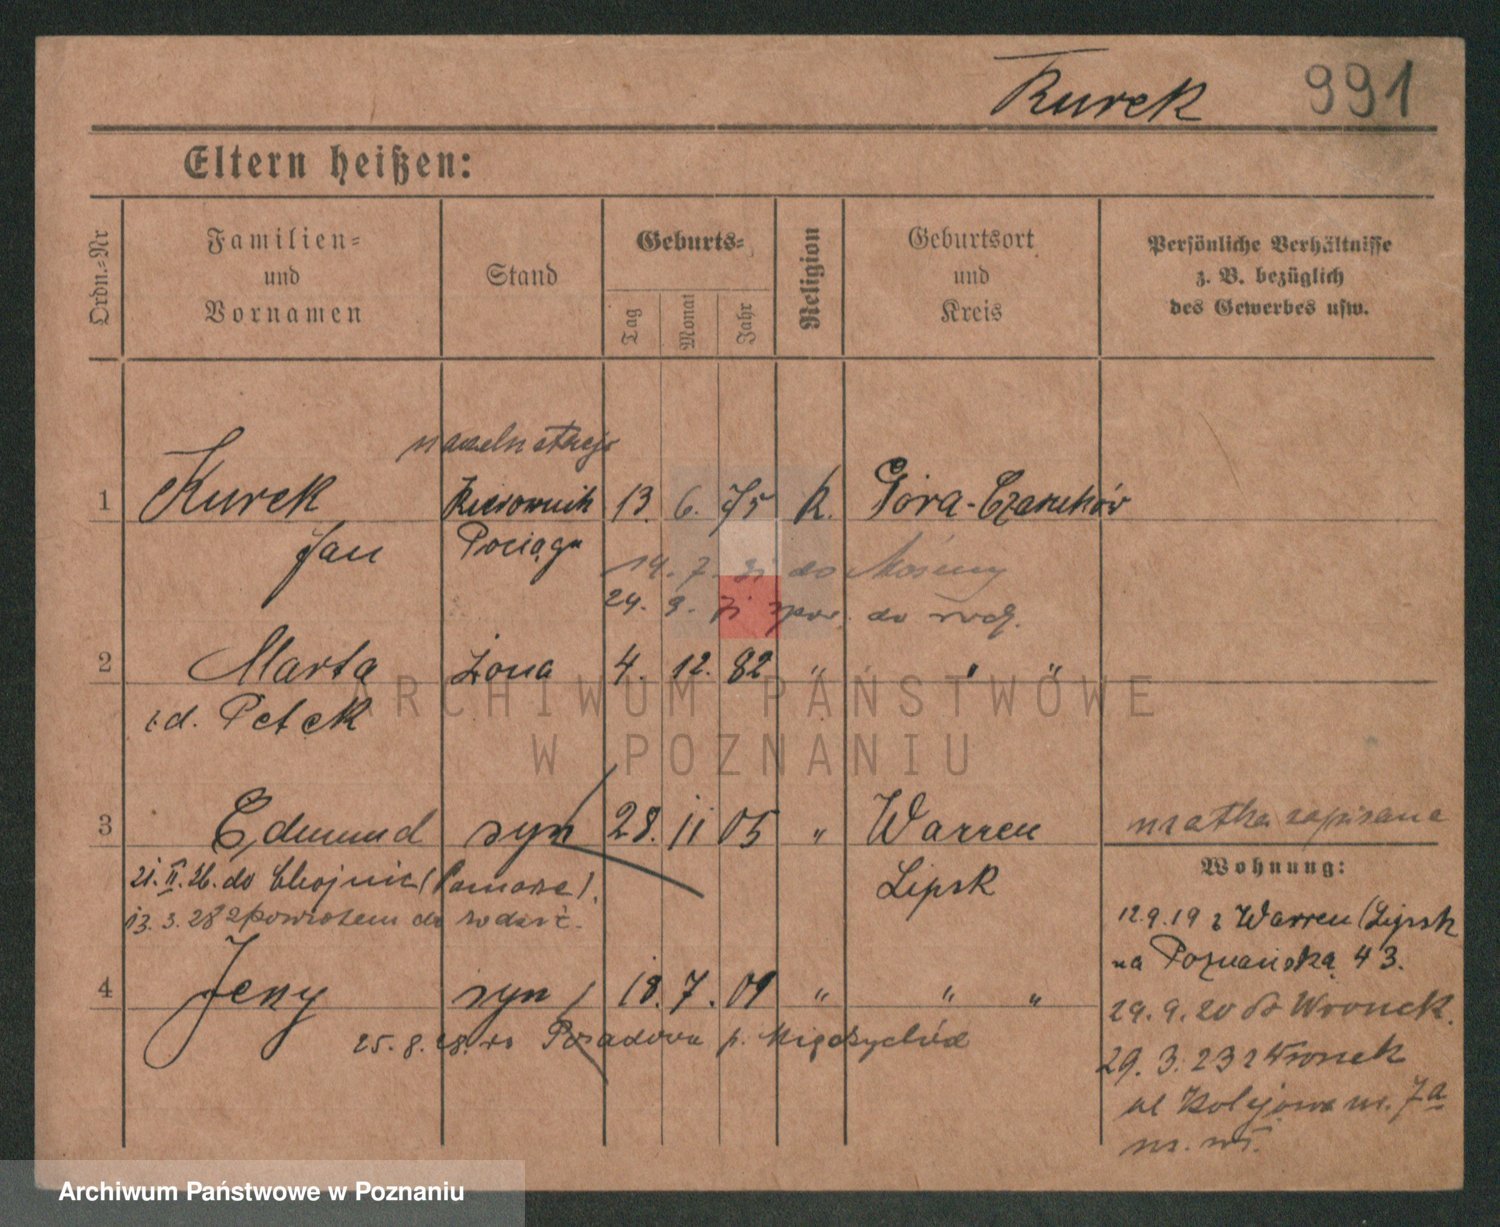 Kurek 991
Eltern heißen:
Ordn.-Nr
Familien- und Vornamen
Stand
Geburts-
Tag
Monat
Jahr
Religion
Geburtsort und Kreis
Persönliche Verhältnisse z. B. bezüglich des Gewerbes usw.
naczeln stacji
1 Kurek Kierownik 13. 6. 75 K. Góra-
Jan Pociągu
14. 7. do
24. 9. do rodz.
2 Marta żona 4. 12. 82 " " "
Petek
3 Edmund syn 28. 11 05 " Warren
matka zapisana
21. II. 26. do Chojnic (Pomorze). Lipsk
13. 3. 28 z powrotem do
4 Jeny syn 18. 7. 09 " " "
25. 8. 28. Posadowa p. Międzychód
Wohnung:
12.9.19 z Warren (Lipsk
na Poznańska 43.
29. 9. 20 Wronek.
29. 3. 23 z Wronek
ul Kolejowa nr. 7a
ARCHIWUM PAŃSTWOWE
W POZNANIU
Archiwum Państwowe w Poznaniu